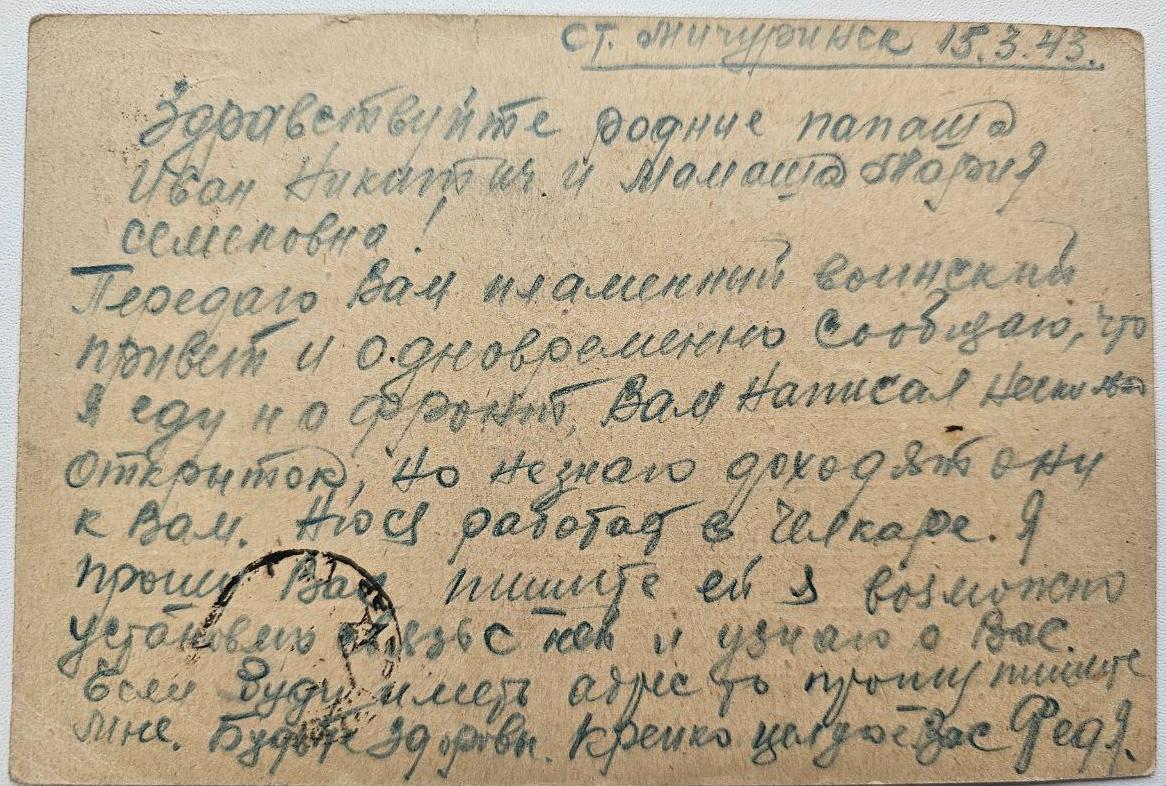 ст. Мичуринск 15.3.43.
Здравствуйте родние папаша
Иван Никитич и Мамаша Мария
семеновна!
Передаю Вам пламенный воинский
привет и одновременно сообщаю, что
я еду на фронт, Вам написал несколько
открыток, но незнаю доходят они
к Вам. Нюся работает в Челкаре. Я
прошу Вас пишите ей я возможно
установлю связь с ней и узнаю о Вас.
Если буду иметь адрес то прошу пишите
мне. Будьте здоровы. Крепко целую Вас Федя.